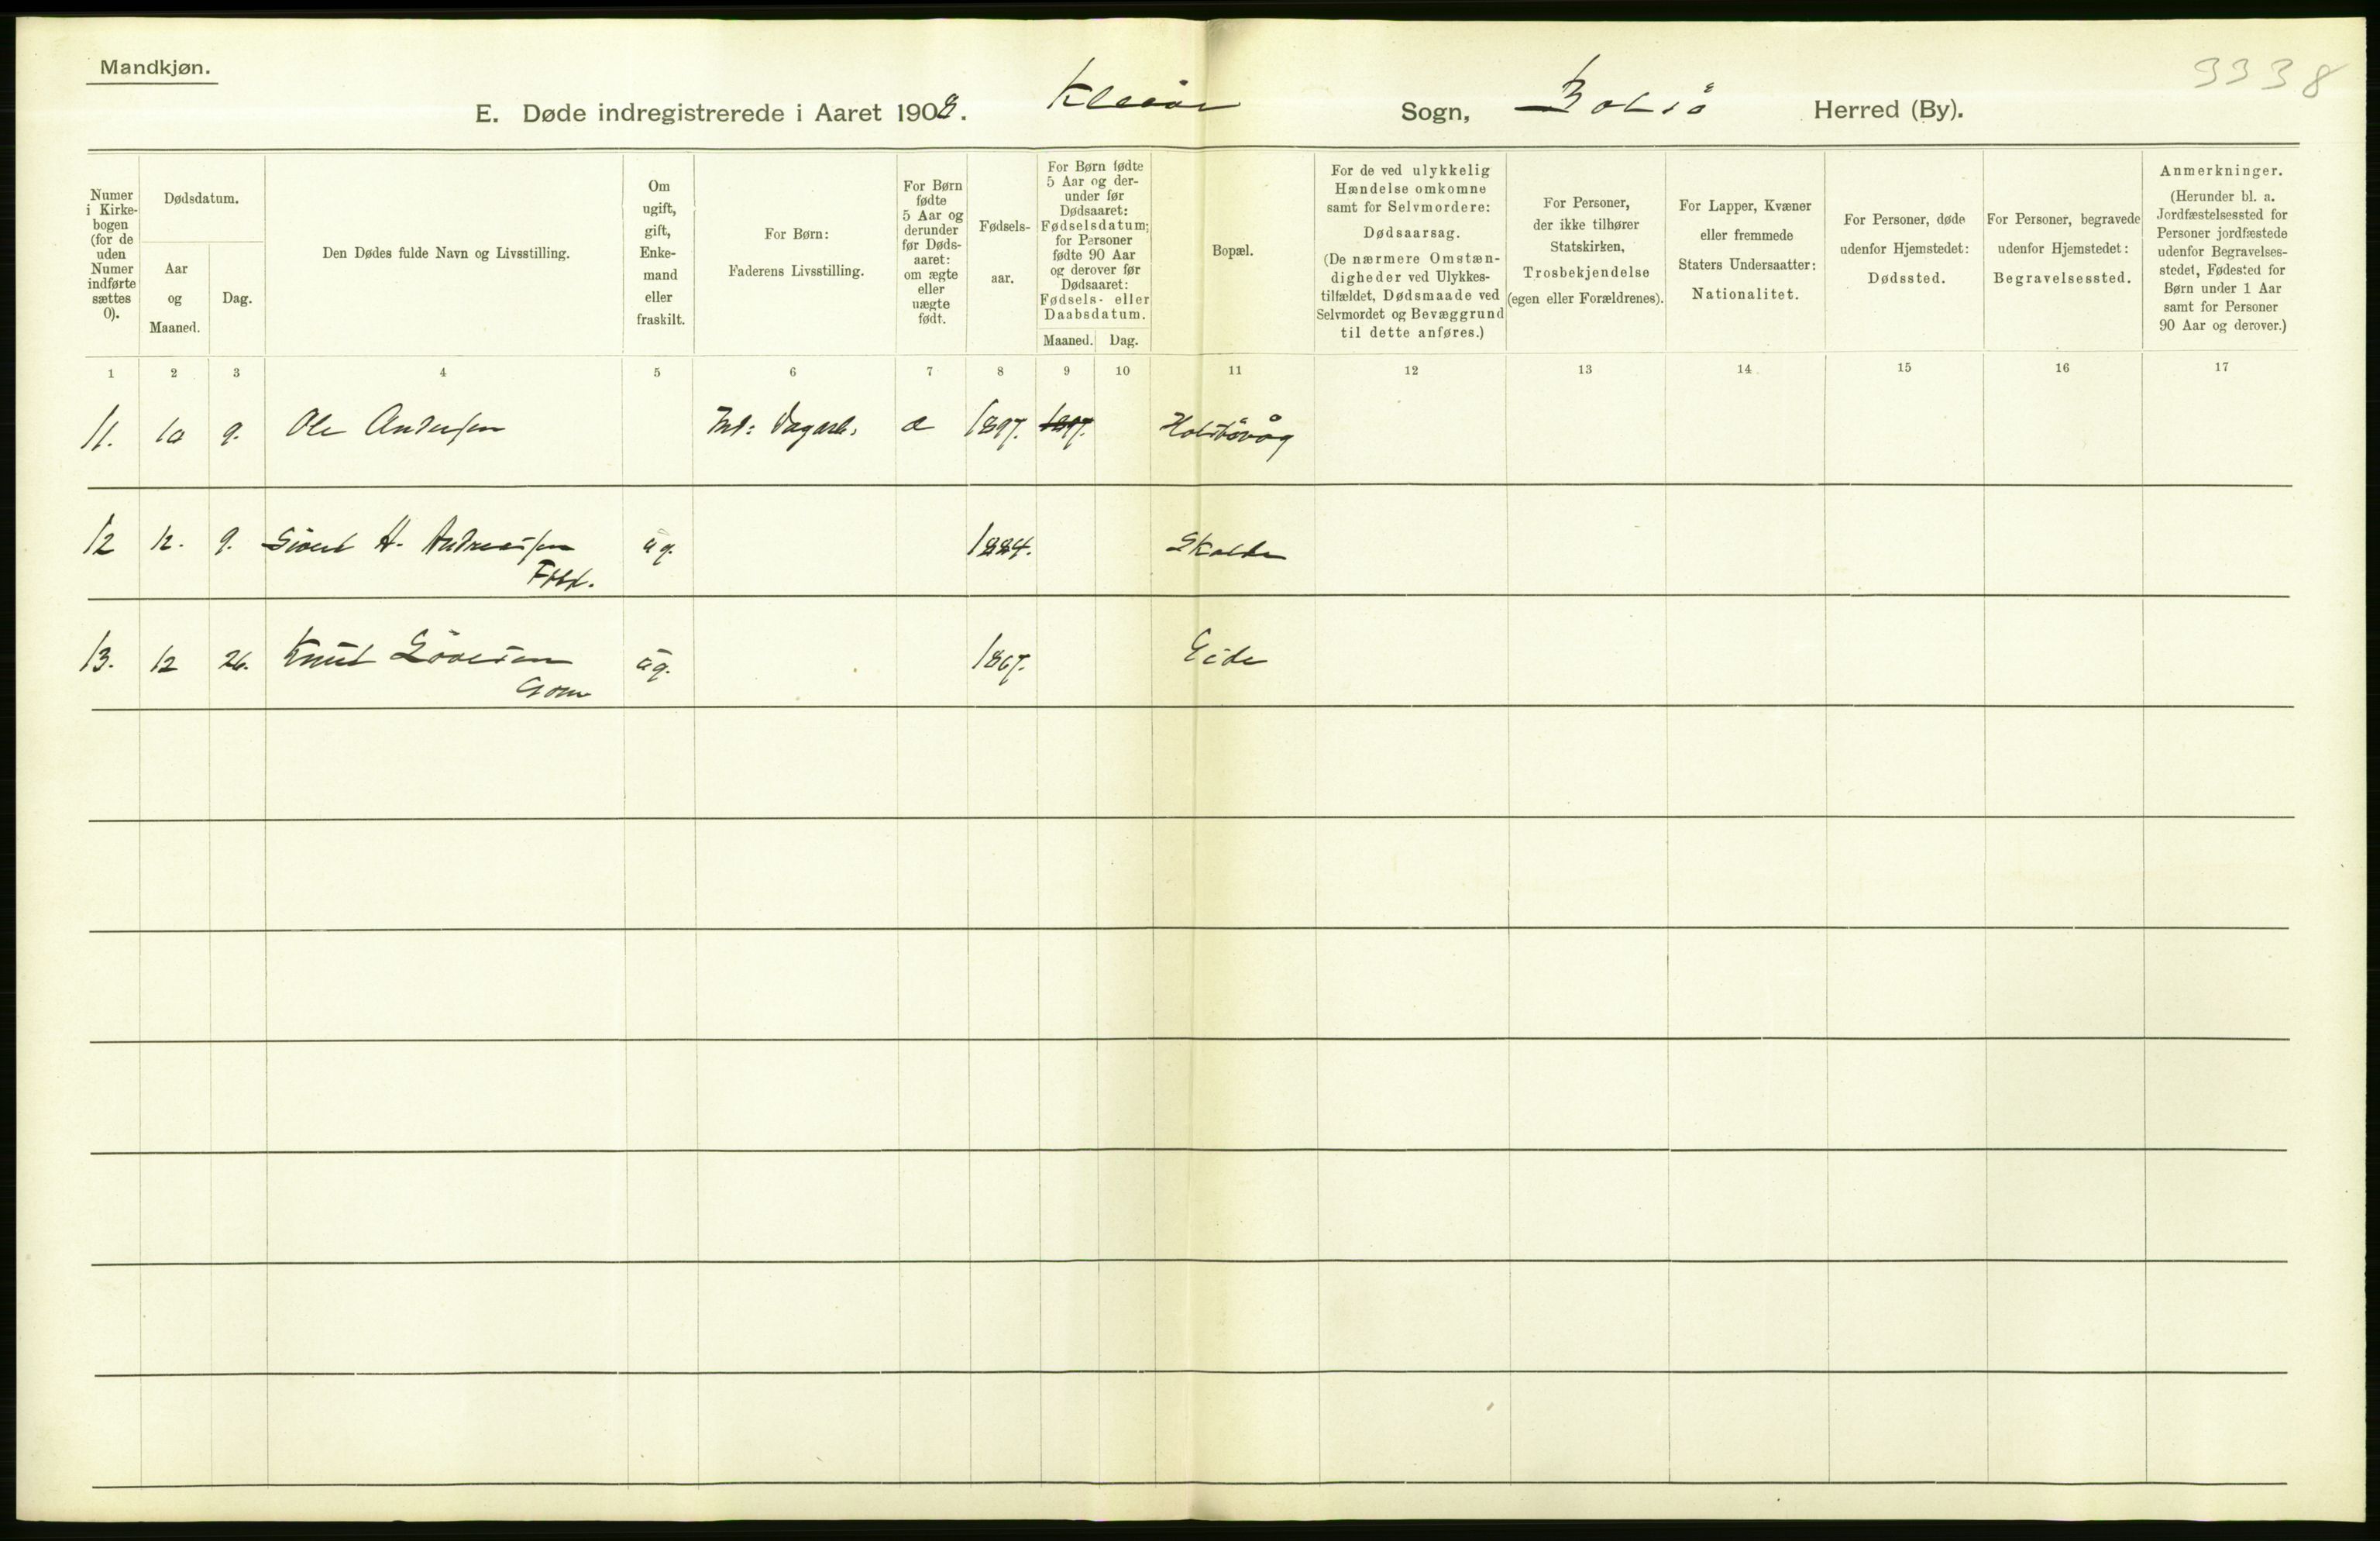 Mandkjøn.
3338
E. Døde indregistrerede i Aaret 1908. Kleive Sogn, Bolsö Herred (By).
Numer i Kirke-bogen (for de uden Numer indførte sættes 0).
Dødsdatum.
Aar og Maaned.
Dag.
Den Dødes fulde Navn og Livsstilling.
Om ugift, gift, Enke-mand eller fraskilt.
For Børn: Faderens Livsstilling.
For Børn fødte 5 Aar og derunder før Døds-aaret: om ægte eller uægte født.
Fødsels-aar.
For Børn fødte 5 Aar og der-under før Dødsaaret: Fødselsdatum; for Personer fødte 90 Aar og derover før Dødsaaret: Fødsels- eller Daabsdatum.
Maaned. Dag.
Bopæl.
For de ved ulykkelig Hændelse omkomne samt for Selvmordere: Dødsaarsag. (De nærmere Omstæn-digheder ved Ulykkes-tilfældet, Dødsmaade ved Selvmordet og Bevæggrund til dette anføres.)
For Personer, der ikke tilhører Statskirken, Trosbekjendelse (egen eller Forældrenes).
For Lapper, Kvæner eller fremmede Staters Undersaatter: Nationalitet.
For Personer, døde udenfor Hjemstedet: Dødssted.
For Personer, begravede udenfor Hjemstedet: Begravelsessted.
Anmerkninger. (Herunder bl. a. Jordfæstelsessted for Personer jordfæstede udenfor Begravelses-stedet, Fødested for Børn under 1 Aar samt for Personer 90 Aar og derover.)
1 2 3 4 5 6 7 8 9 10 11 12 13 14 15 16 17
11. 10 9. Ole Andersen Ind: Dagarb. 1897. 1897.
12 12. 9. Sivert A. Andreassen ug. 1884.
13. 12 26. Knut ug. 1867. Eide